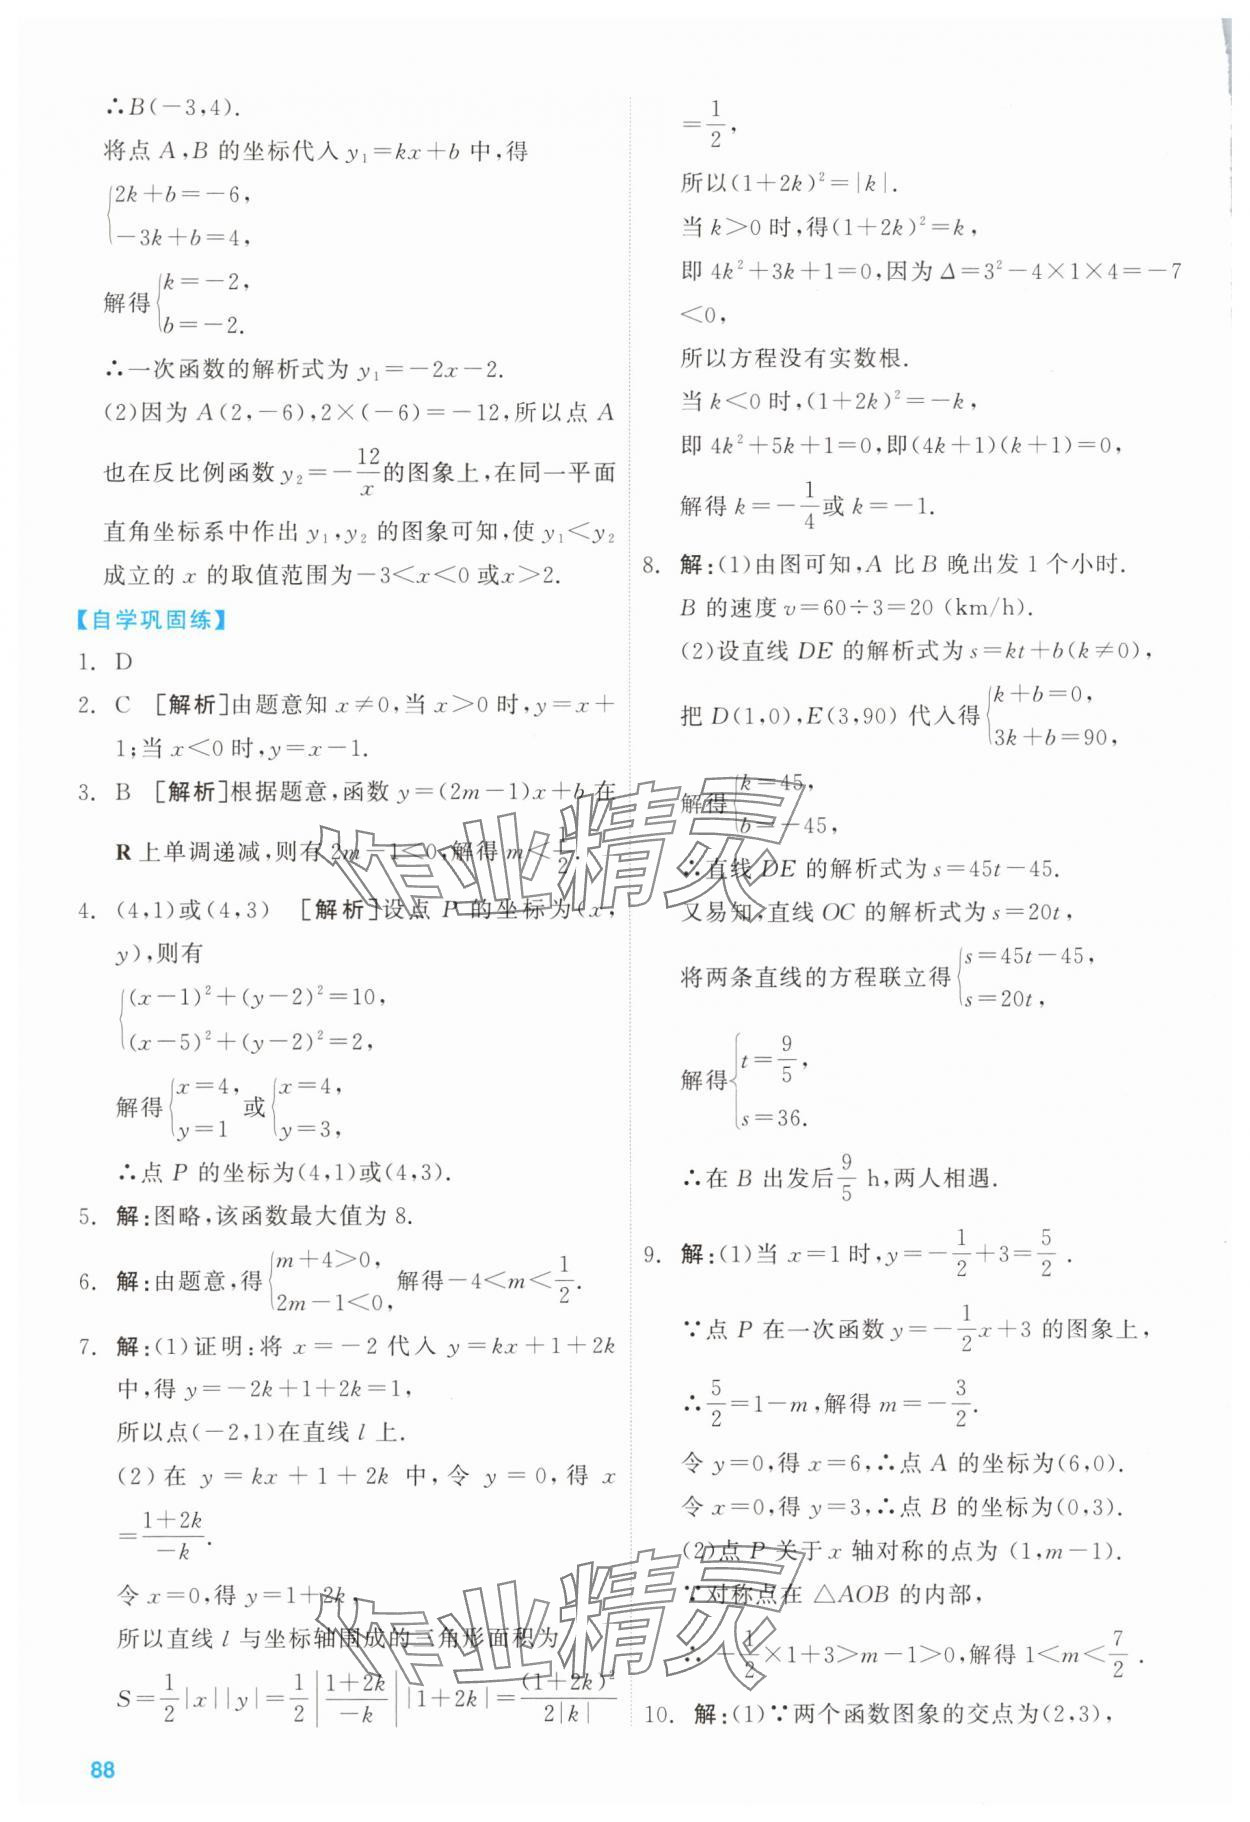 ∴B(－3,4).
将点 A,B 的坐标代入 y₁＝kx＋b 中,得
{2k＋b＝－6,
－3k＋b＝4,
解得{k＝－2,
b＝－2.
∴一次函数的解析式为 y₁＝－2x－2.
(2)因为 A(2,－6),2×(－6)＝－12,所以点 A
也在反比例函数 y₂＝－12/x的图象上,在同一平面
直角坐标系中作出 y₁,y₂ 的图象可知,使 y₁＜y₂
成立的 x 的取值范围为－3＜x＜0 或x＞2.
【自学巩固练】
1. D
2. C [解析]由题意知 x≠0,当 x＞0 时,y＝x＋
1;当 x＜0 时,y＝x－1.
3. B [解析]根据题意,函数 y＝(2m－1)x＋b 在
R 上单调递减,则有 2m－1＜0,解得 m＜1/2.
4. (4,1)或(4,3) [解析]设点 P 的坐标为(x,
y),则有
{(x－1)²＋(y－2)²＝10,
(x－5)²＋(y－2)²＝2,
解得{x＝4,
y＝1 或{x＝4,
y＝3,
∴点 P 的坐标为(4,1)或(4,3).
5. 解:图略,该函数最大值为 8.
6. 解:由题意,得{m＋4＞0,
2m－1＜0, 解得－4＜m＜1/2.
7. 解:(1)证明:将 x＝－2 代入 y＝kx＋1＋2k
中,得 y＝－2k＋1＋2k＝1,
所以点(－2,1)在直线 l 上.
(2)在 y＝kx＋1＋2k 中,令 y＝0,得 x
＝(1＋2k)/(－k).
令 x＝0,得 y＝1＋2k,
所以直线 l 与坐标轴围成的三角形面积为
S＝1/2|x||y|＝1/2|(1＋2k)/(－k)||1＋2k|＝(1＋2k)²/(2|k|)
88
＝1/2,
所以(1＋2k)²＝|k|.
当 k＞0 时,得(1＋2k)²＝k,
即 4k²＋3k＋1＝0,因为 Δ＝3²－4×1×4＝－7
＜0,
所以方程没有实数根.
当 k＜0 时,(1＋2k)²＝－k,
即 4k²＋5k＋1＝0,即(4k＋1)(k＋1)＝0,
解得 k＝－1/4或 k＝－1.
8. 解:(1)由图可知,A 比 B 晚出发 1 个小时.
B 的速度 v＝60÷3＝20 (km/h).
(2)设直线 DE 的解析式为 s＝kt＋b(k≠0),
把 D(1,0),E(3,90) 代入得{k＋b＝0,
3k＋b＝90,
解得{k＝45,
b＝－45,
∴直线 DE 的解析式为 s＝45t－45.
又易知,直线 OC 的解析式为 s＝20t,
将两条直线的方程联立得{s＝45t－45,
s＝20t,
解得{t＝9/5,
s＝36.
∴在 B 出发后9/5 h,两人相遇.
9. 解:(1)当 x＝1 时,y＝－1/2＋3＝5/2 .
∵点 P 在一次函数 y＝－1/2x＋3 的图象上,
∴5/2＝1－m,解得 m＝－3/2.
令 y＝0,得 x＝6,∴点 A 的坐标为(6,0).
令 x＝0,得 y＝3,∴点 B 的坐标为(0,3).
(2)点 P 关于 x 轴对称的点为 (1,m－1).
∵对称点在 △AOB 的内部,
∴－1/2×1＋3＞m－1＞0,解得 1＜m＜7/2 .
10. 解:(1)∵两个函数图象的交点为(2,3),
作业精灵
作业精灵